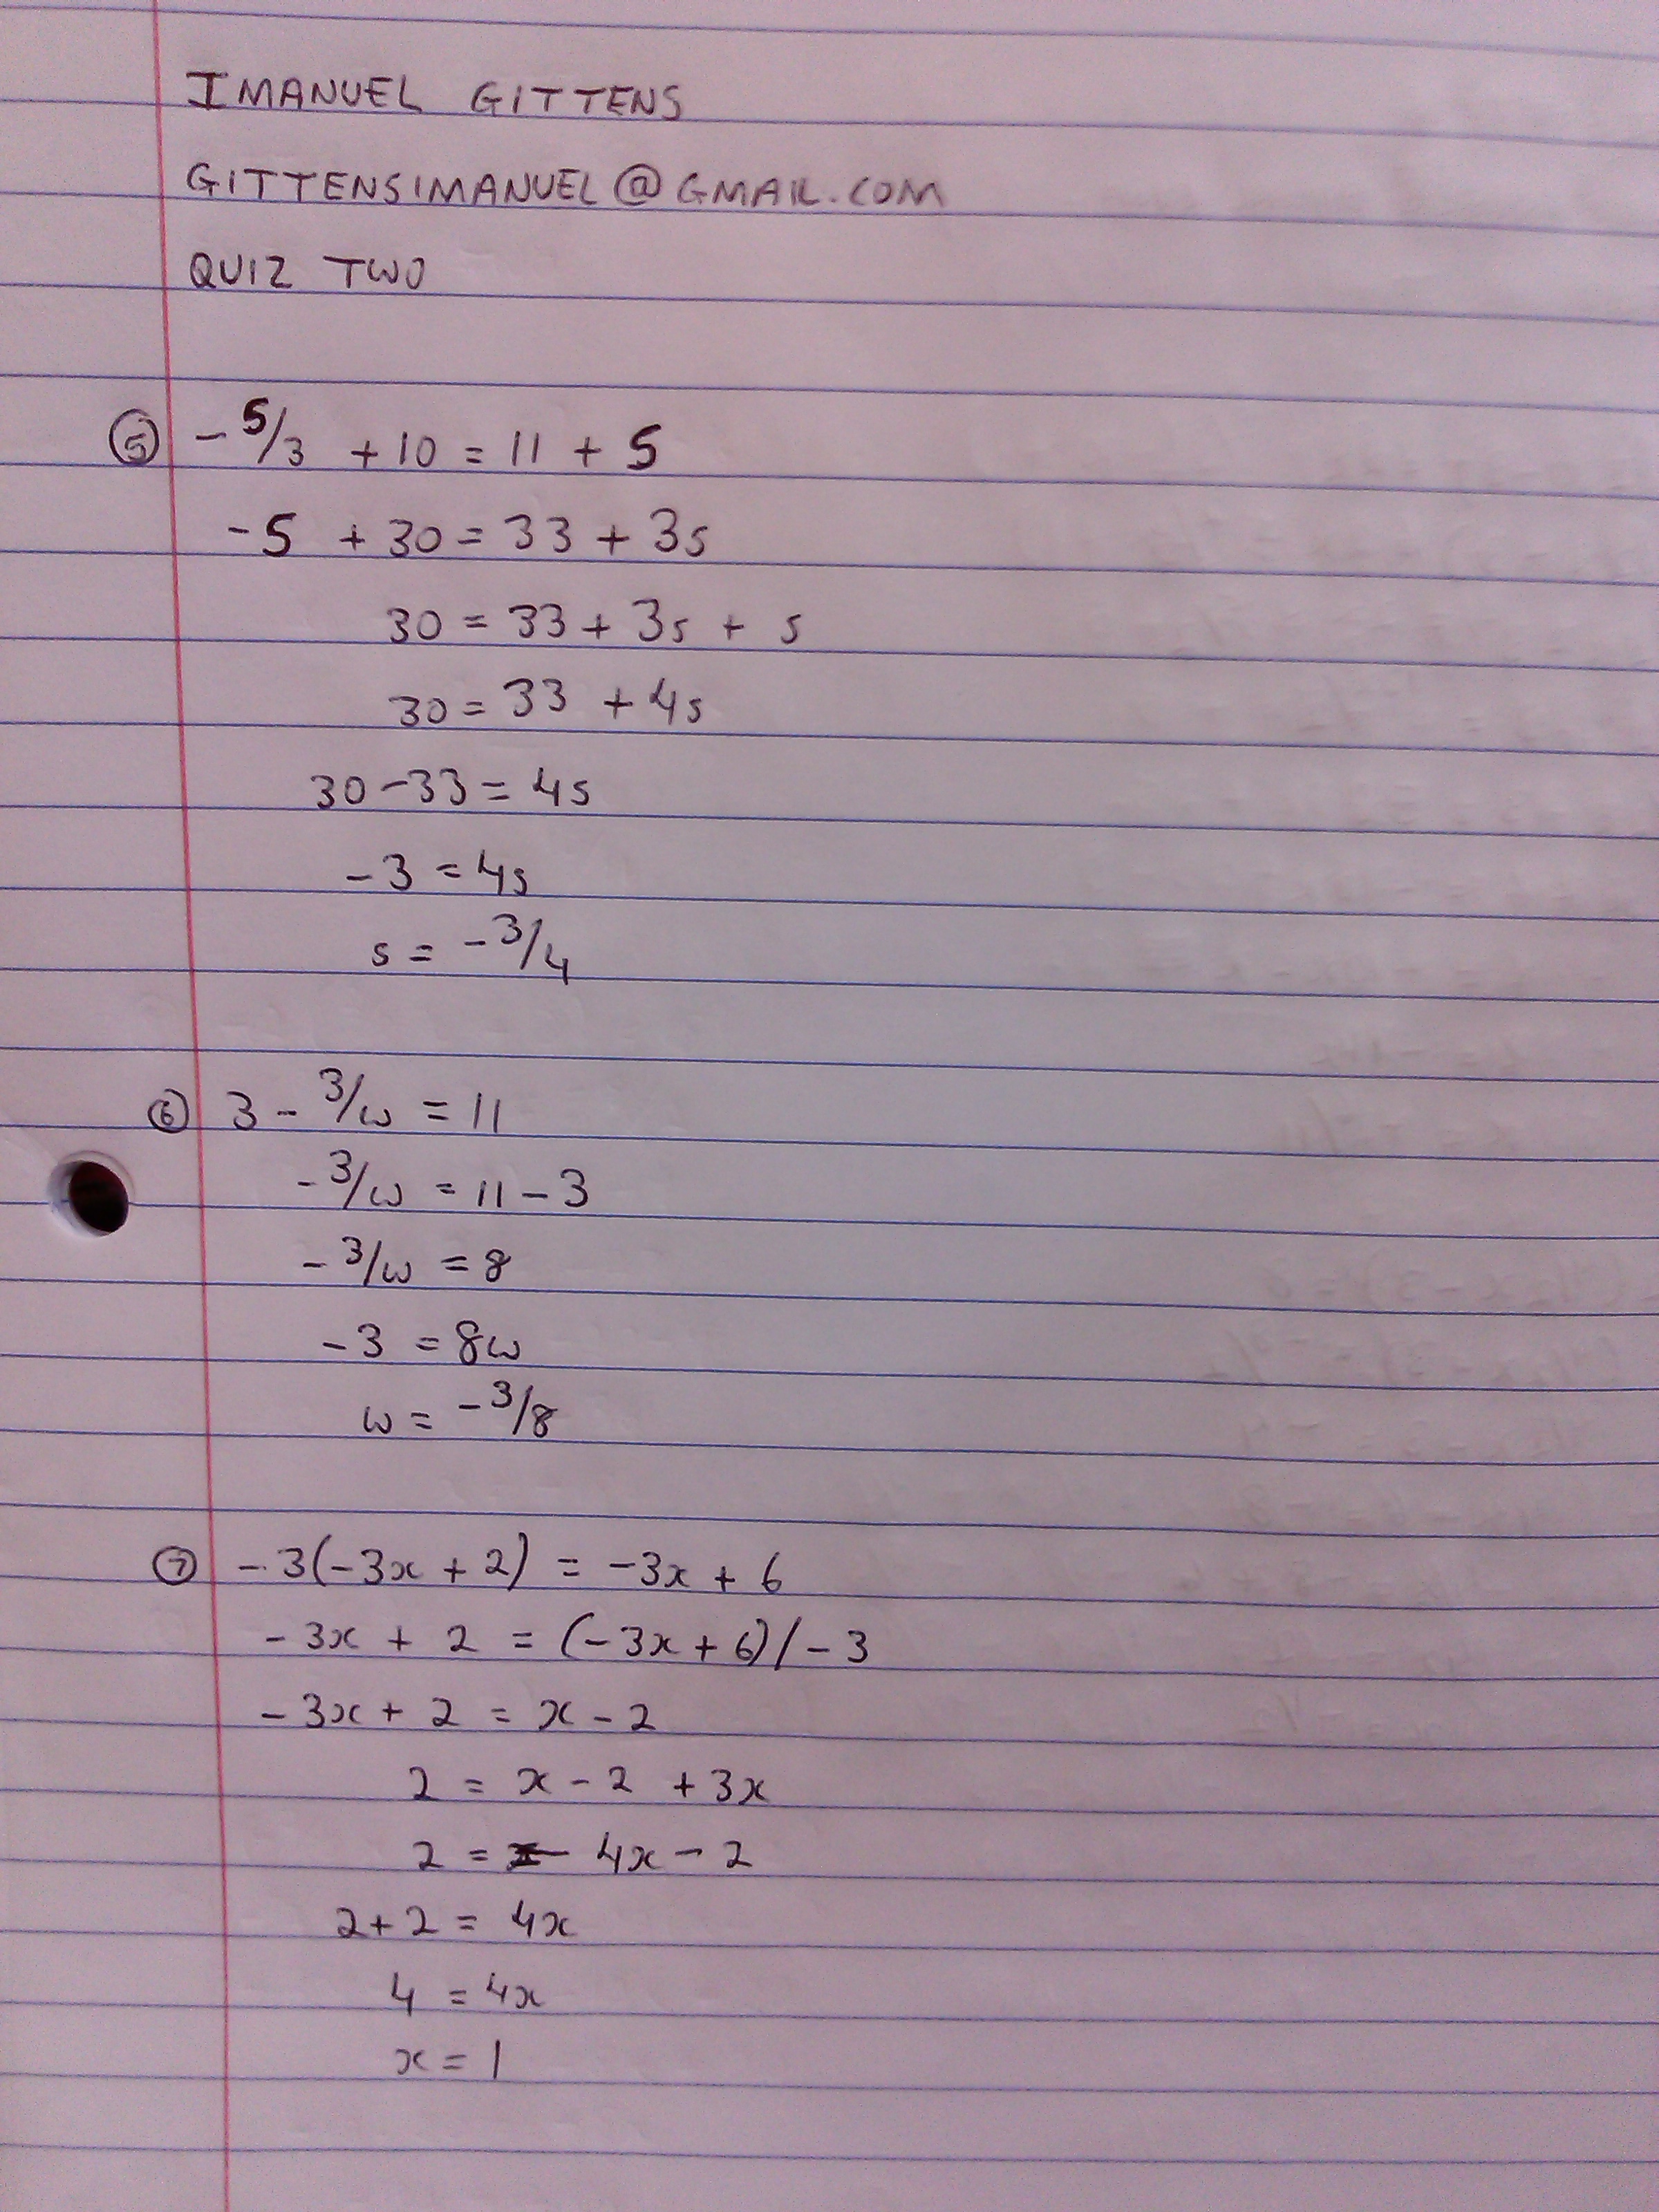 IMANUEL GITTENS
GITTENSIMANUEL@GMAIL.COM
QUIZ TWO
⑤ - s/3 + 10 = 11 + s
-s + 30 = 33 + 3s
30 = 33 + 3s + s
30 = 33 + 4s
30 - 33 = 4s
-3 = 4s
s = -3/4
⑥ 3 - 3/w = 11
-3/w = 11 - 3
-3/w = 8
-3 = 8w
w = -3/8
⑦ -3(-3x + 2) = -3x + 6
-3x + 2 = (-3x + 6)/-3
-3x + 2 = x - 2
2 = x - 2 + 3x
2 = 4x - 2
2 + 2 = 4x
4 = 4x
x = 1